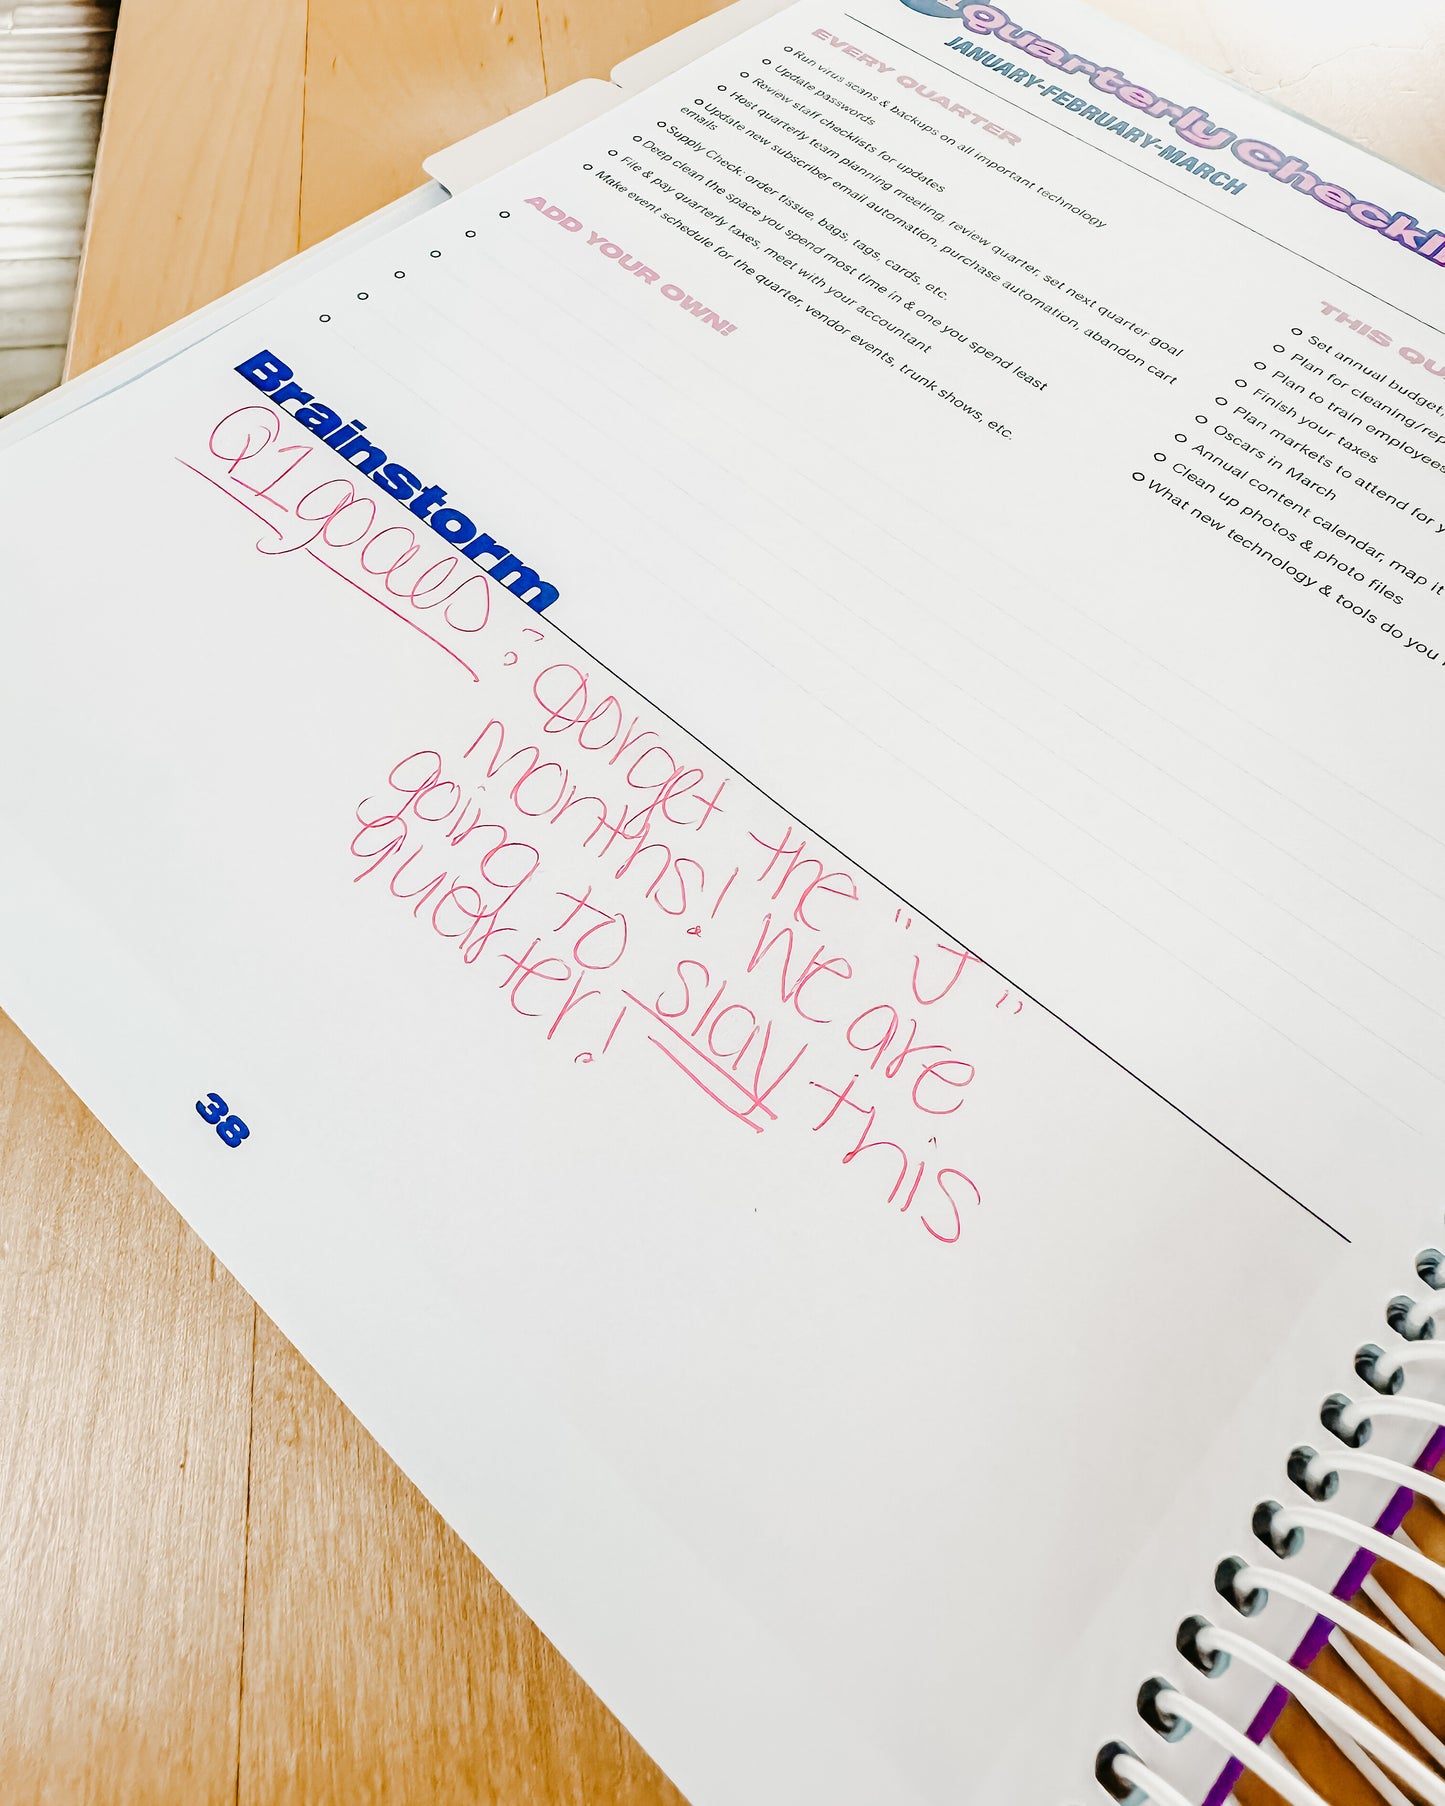 Quarterly Checkli
JANUARY-FEBRUARY-MARCH
EVERY QUARTER
Run virus scans & backups on all important technology
Update passwords
Review staff checklists for updates
Host quarterly team planning meeting, review quarter, set next quarter goal
Update new subscriber email automation, purchase automation, abandon cart
emails
Supply Check: order tissue, bags, tags, cards, etc.
Deep clean the space you spend most time in & one you spend least
File & pay quarterly taxes, meet with your accountant
Make event schedule for the quarter, vendor events, trunk shows, etc.
ADD YOUR OWN!
THIS QU
Set annual budget,
Plan for cleaning/rep
Plan to train employees
Finish your taxes
Plan markets to attend for y
Oscars in March
Annual content calendar, map it
Clean up photos & photo files
What new technology & tools do you
Brainstorm
Q1 goals:
the "J"
months! We are
going to slay this
quarter!
38